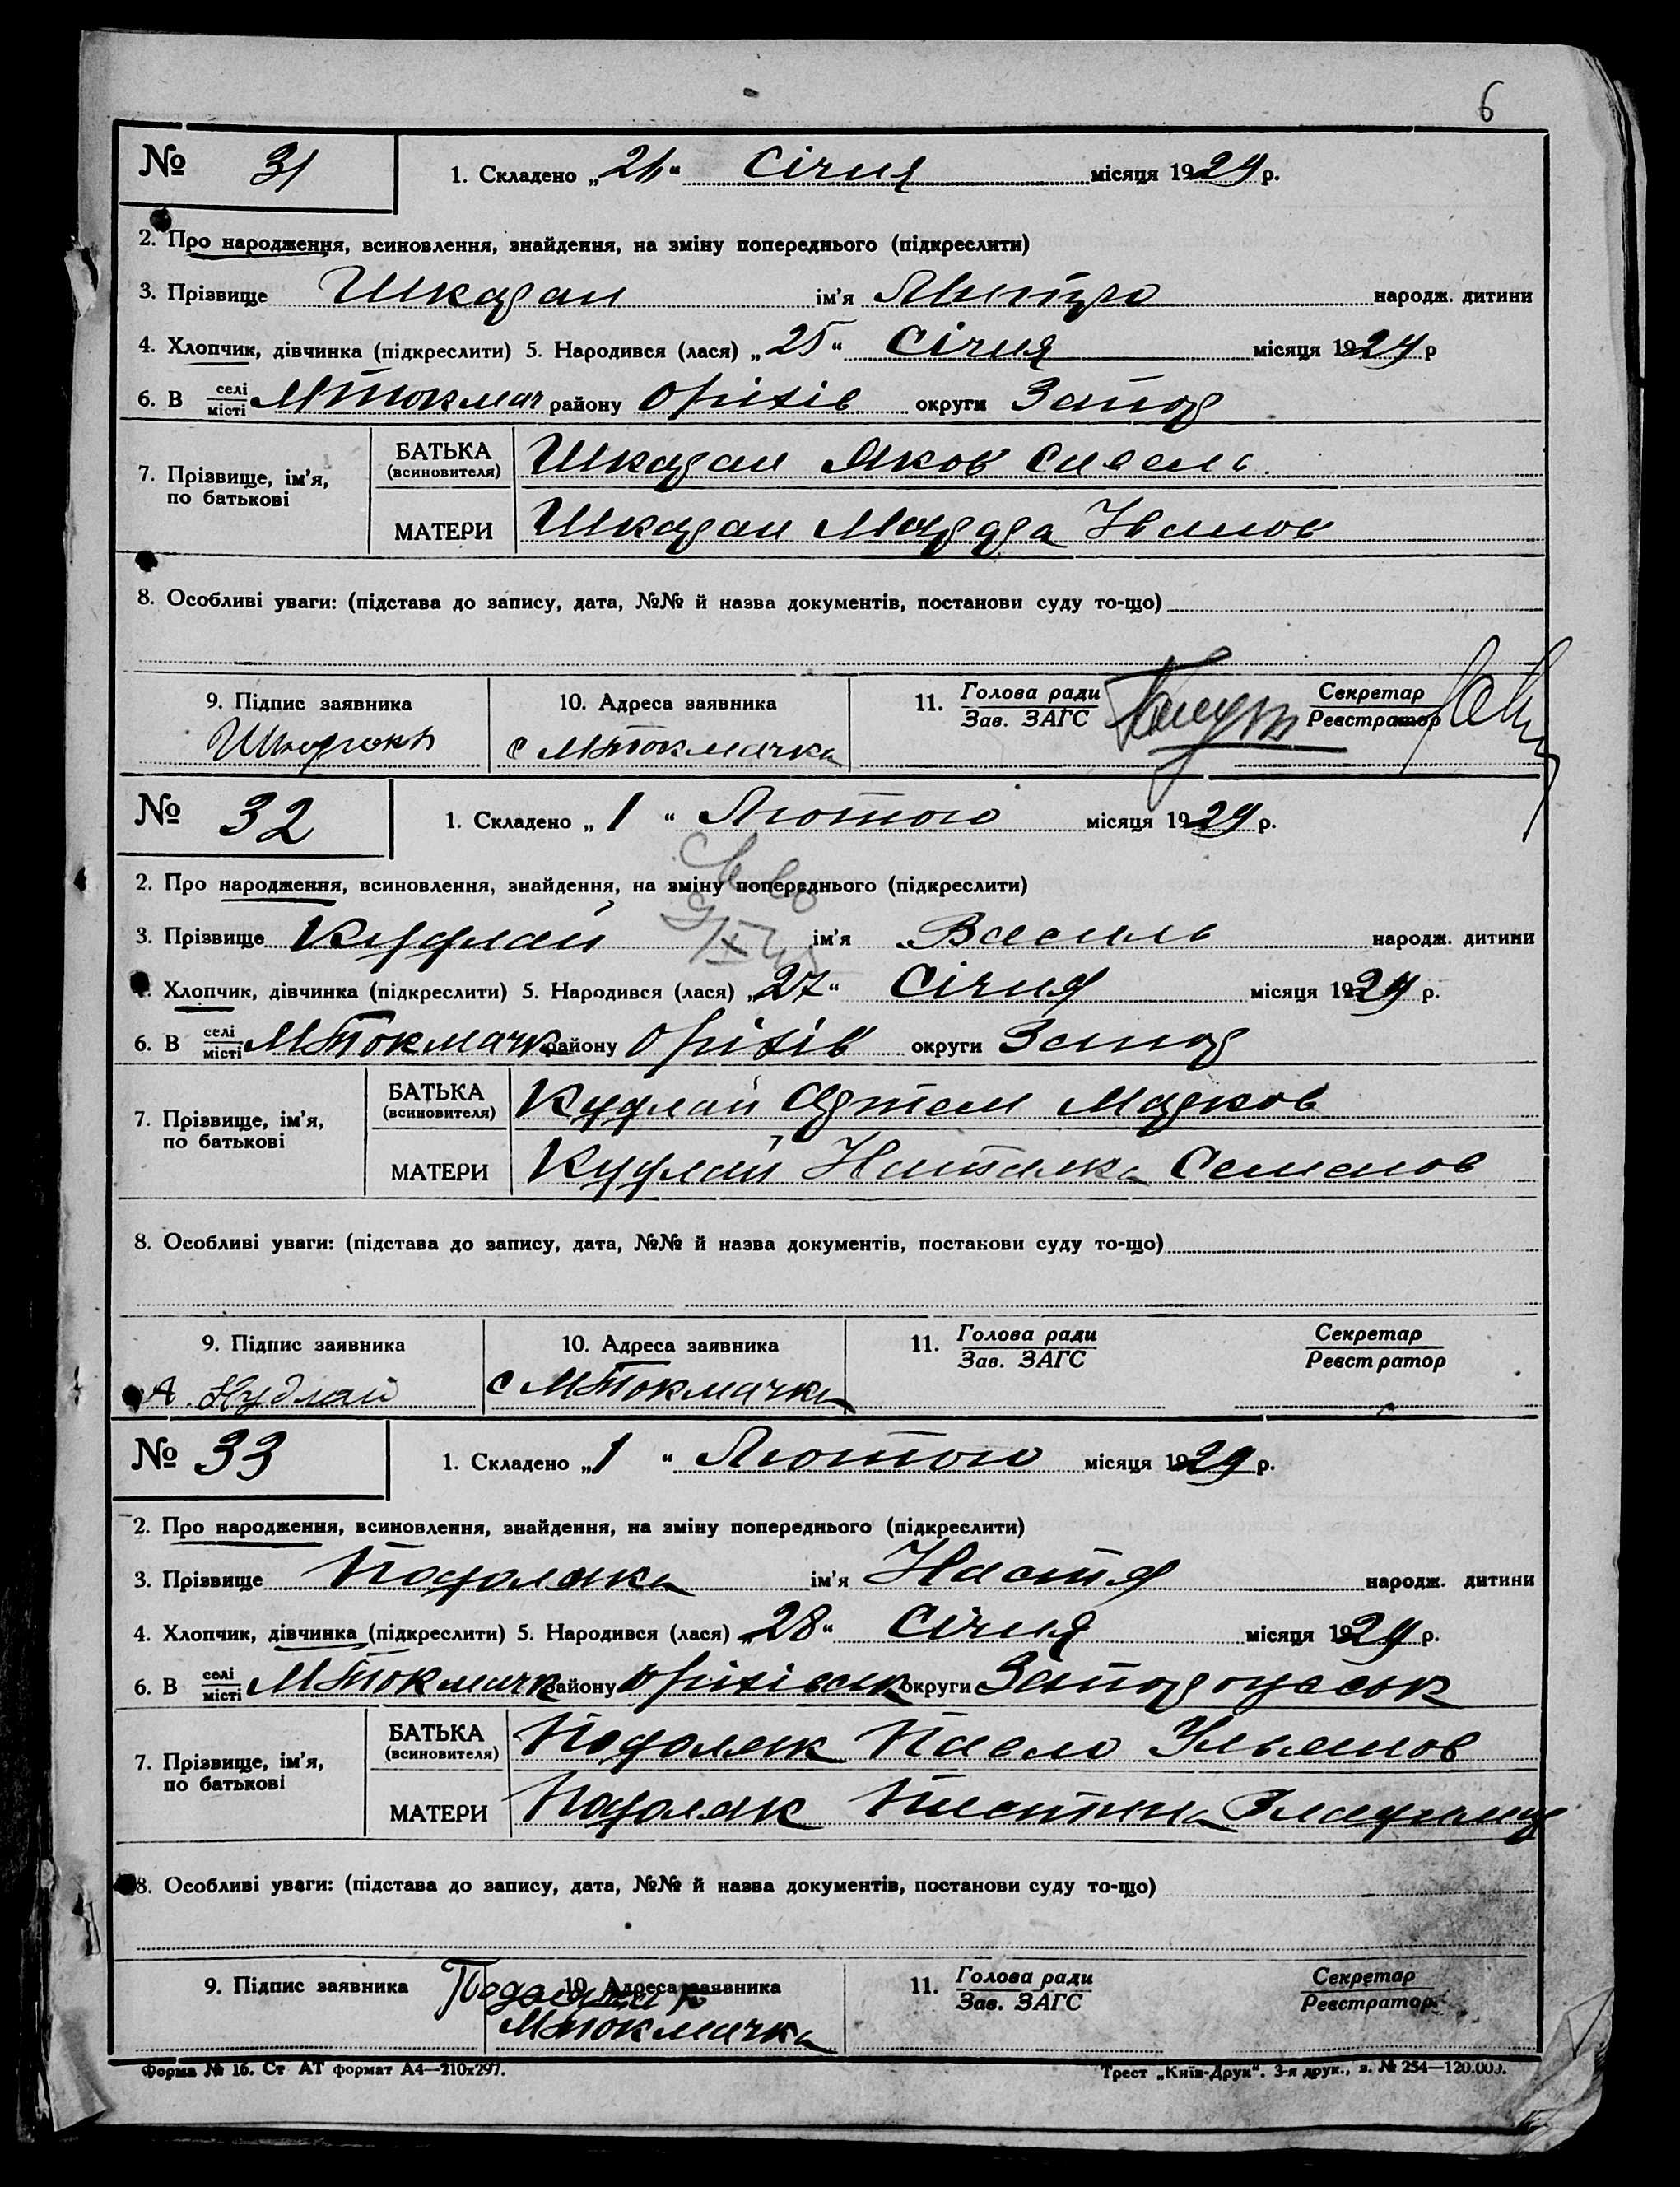 6
№ 31 1. Складено „26“ Січня місяця 1929 р.
2. Про народження, всиновлення, знайдення, на зміну попереднього (підкреслити)
3. Прізвище ім'я народж. дитини
4. Хлопчик, дівчинка (підкреслити) 5. Народився (лася) „25“ Січня місяця 1929 р
6. В селі/місті МТокмач району Оріхів округи Запор
7. Прізвище, ім'я, по батькові БАТЬКА (всиновителя) Яков Савель
МАТЕРИ Иванов
8. Особливі уваги: (підстава до запису, дата, №№ й назва документів, постанови суду то-що)
9. Підпис заявника 10. Адреса заявника 11. Голова ради/Зав. ЗАГС Секретар/Реєстратор
с МТокмачка
№ 32 1. Складено „1“ Лютого місяця 1929 р.
2. Про народження, всиновлення, знайдення, на зміну попереднього (підкреслити)
3. Прізвище Кудлай ім'я Василь народж. дитини
4. Хлопчик, дівчинка (підкреслити) 5. Народився (лася) „27“ Січня місяця 1929 р.
6. В селі/місті МТокмачк району Оріхів округи Запор
7. Прізвище, ім'я, по батькові БАТЬКА (всиновителя) Кудлай Артем Марков
МАТЕРИ Кудлай Наталка Семенов
8. Особливі уваги: (підстава до запису, дата, №№ й назва документів, постанови суду то-що)
9. Підпис заявника 10. Адреса заявника 11. Голова ради/Зав. ЗАГС Секретар/Реєстратор
А Кудлай с МТокмачка
№ 33 1. Складено „1“ Лютого місяця 1929 р.
2. Про народження, всиновлення, знайдення, на зміну попереднього (підкреслити)
3. Прізвище Подоляка ім'я Настя народж. дитини
4. Хлопчик, дівчинка (підкреслити) 5. Народився (лася) „28“ Січня місяця 1929 р.
6. В селі/місті МТокмачк району Оріхівськ округи Запорожськ
7. Прізвище, ім'я, по батькові БАТЬКА (всиновителя) Подоляк Павло Ульянов
МАТЕРИ Подоляк
8. Особливі уваги: (підстава до запису, дата, №№ й назва документів, постанови суду то-що)
9. Підпис заявника 10. Адреса заявника 11. Голова ради/Зав. ЗАГС Секретар/Реєстратор
МТокмачка
Форма № 16. Ст АТ формат А4—210х297. Трест „Київ-Друк“. 3-я друк., з. № 254—120.000.